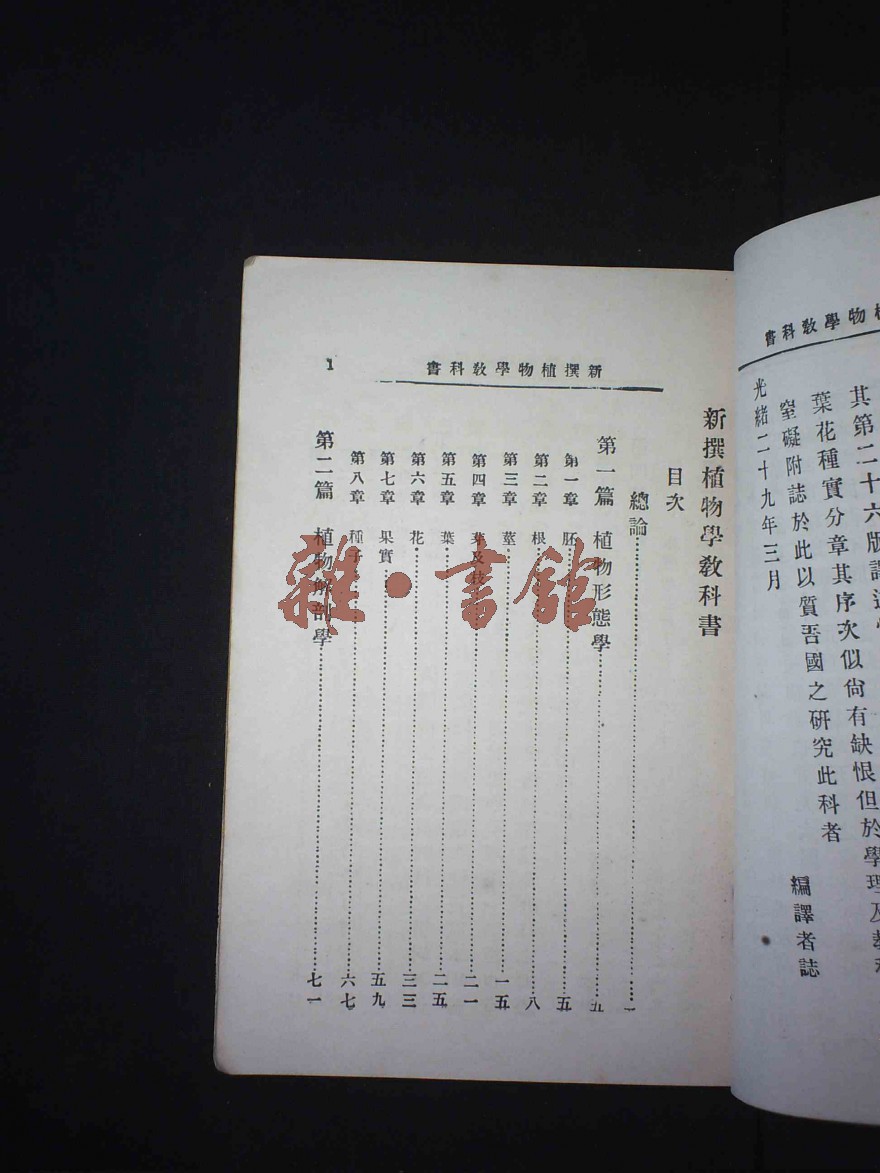 書科教學物
其第二十六版譯
葉花種實分章其序次似尙有缺恨但於學理及教
窒礙附誌於此以質吾國之研究此科者
編譯者誌
光緒二十九年三月
書科教學物植撰新
1
新撰植物學教科書
目次
總論 一
第一篇 植物形態學 五
第一章 胚 五
第二章 根 八
第三章 莖 一五
第四章 芽及枝 二一
第五章 葉 二五
第六章 花 三三
第七章 果實 五九
第八章 種子 六七
第二篇 植物解剖學 七一
雜·書館